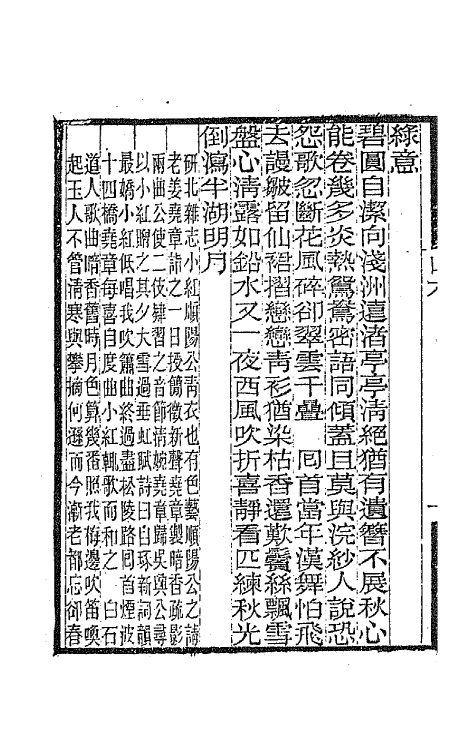 綠意
碧圓自潔向淺洲遠渚亭亭清絕猶有遺簪不展秋心
能卷幾多炎熱鴛鴦密語同傾蓋且莫與浣紗人說恐
怨歌忽斷花風碎卻翠雲千疊　囘首當年漢舞怕飛
去謾皺留仙裙摺戀戀靑衫猶染枯香還歎鬢絲飄雪
盤心淸露如鉛水又一夜西風吹折喜靜看匹練秋光
倒瀉半湖明月
研北雜志小紅順陽公靑衣也有色藝順陽公之請
老姜堯章詣之一日授簡徵新聲堯章製暗香疏影
兩曲公使二妓肄習之音節淸婉堯章歸吳興公尋
以小紅贈之其夕大雪過垂虹賦詩曰自琢新詞韻
最嬌小紅低唱我吹簫曲終過盡松陵路囘首煙波
十四橋堯章每喜自度曲小紅輒歌而和之　白石
道人歌曲暗香舊時月色算幾番照我梅邊吹笛喚
起玉人不管淸寒與攀摘何遜而今漸老都忘卻春